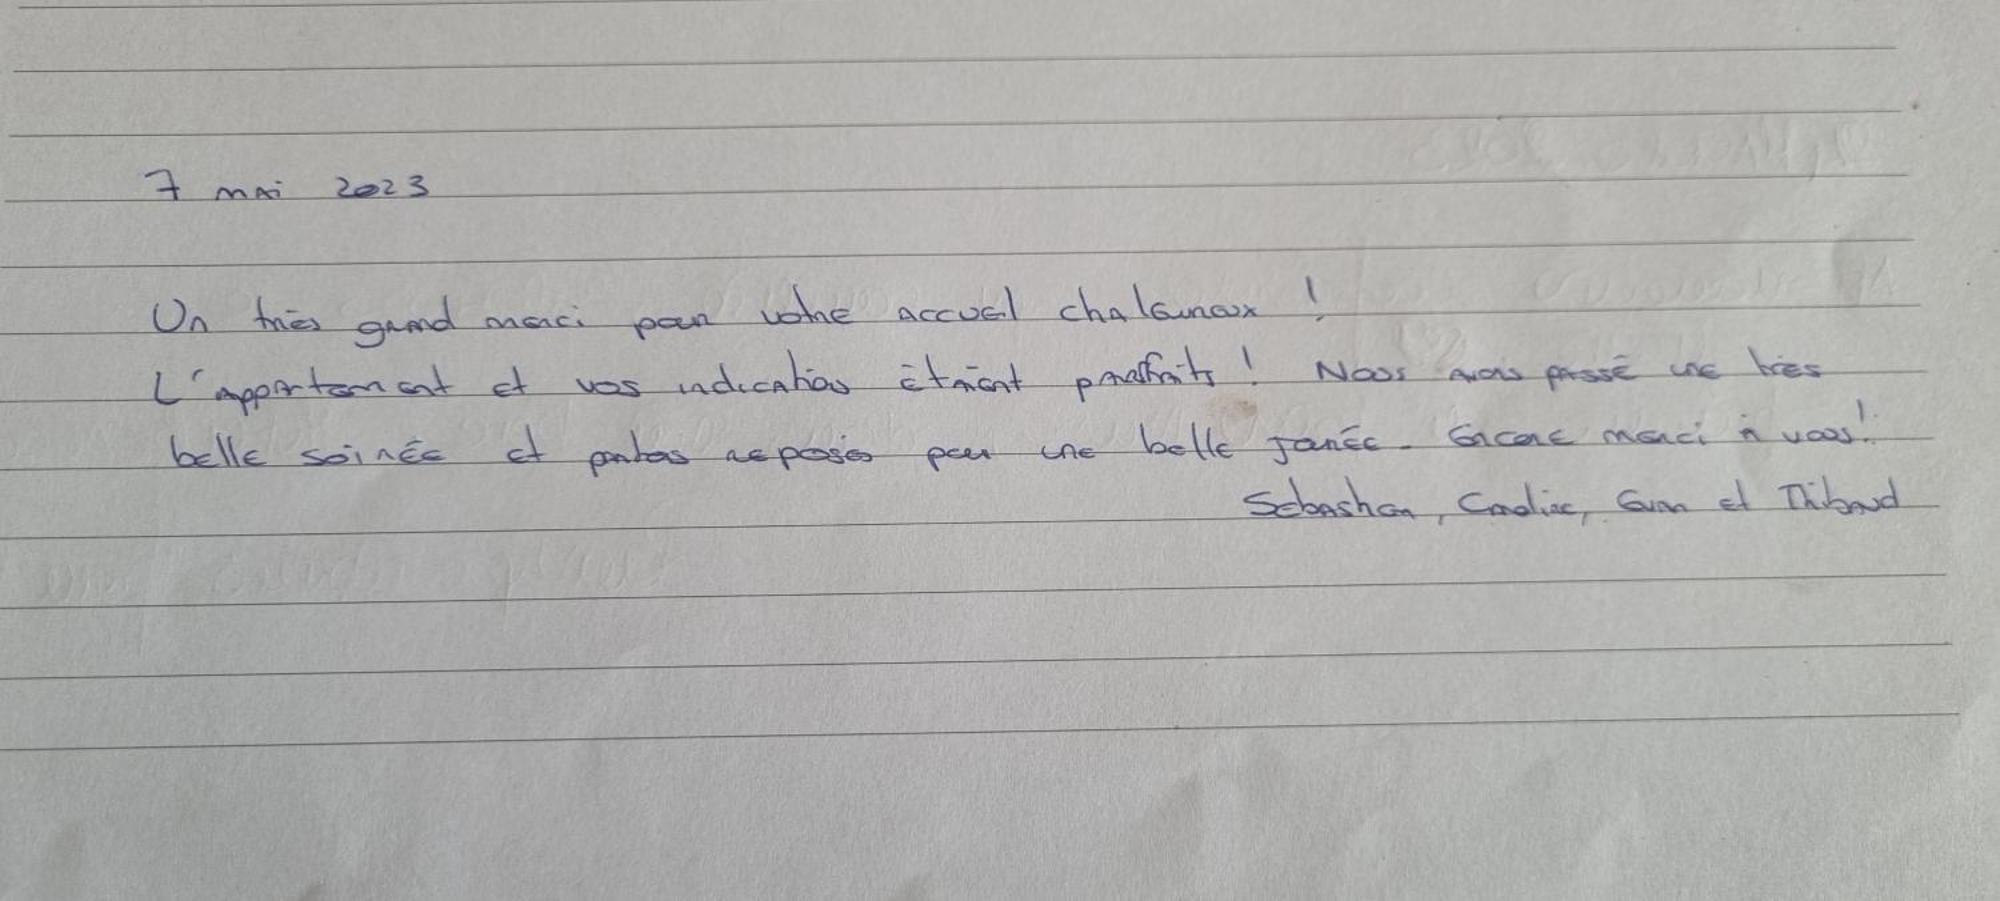 7 mai 2023
Un très grand merci pour votre accueil chaleureux !
L'appartement et vos indications étaient parfaits ! Nous avons passé une très
belle soirée et partons reposés pour une belle journée. Encore merci à vous !
Sebastien, Caroline, et Thibaud